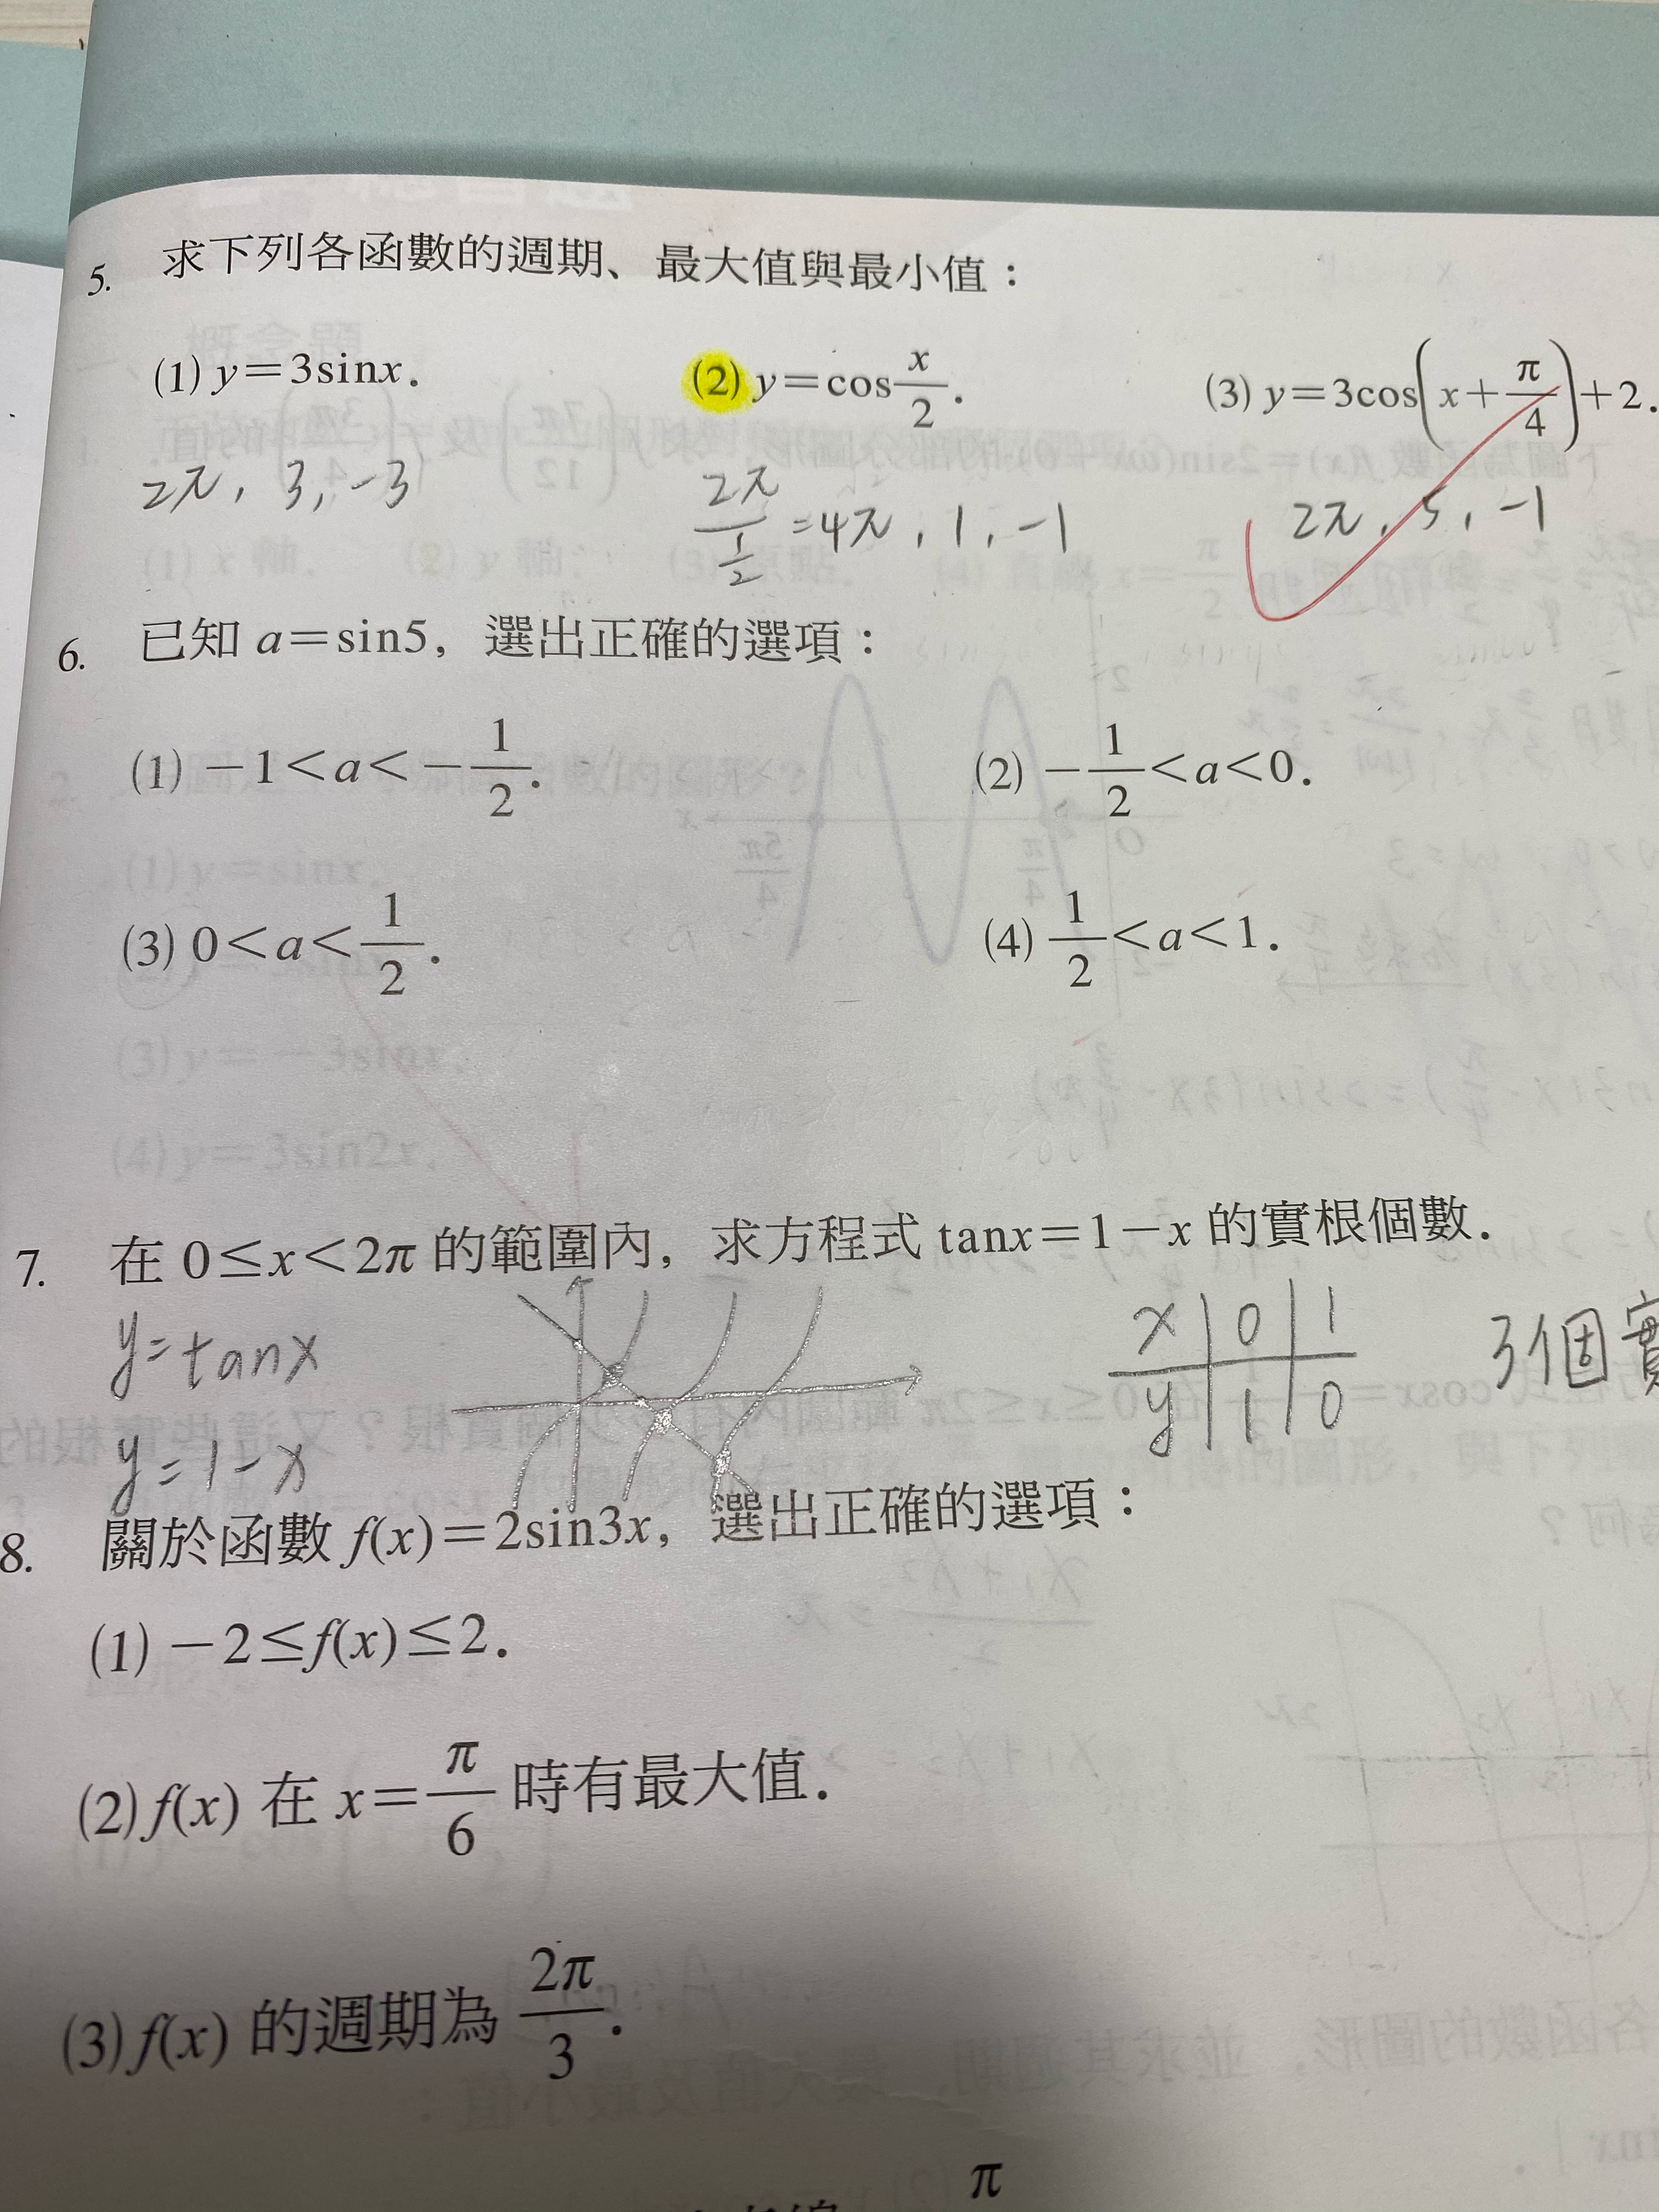 5. 求下列各函數的週期、最大值與最小值：
(1) y=3sinx. (2) y=cos x/2. (3) y=3cos(x+π/4)+2.
2π, 3, -3 2π/(1/2)=4π, 1, -1 2π, 5, -1
6. 已知 a=sin5, 選出正確的選項：
(1) -1<a<-1/2. (2) -1/2<a<0.
(3) 0<a<1/2. (4) 1/2<a<1.
7. 在 0≤x<2π 的範圍內, 求方程式 tanx=1-x 的實根個數.
y=tanx x 0 1 3個實
y=1-x y 1 0
8. 關於函數 f(x)=2sin3x, 選出正確的選項：
(1) -2≤f(x)≤2.
(2) f(x) 在 x=π/6 時有最大值.
(3) f(x) 的週期為 2π/3.
π